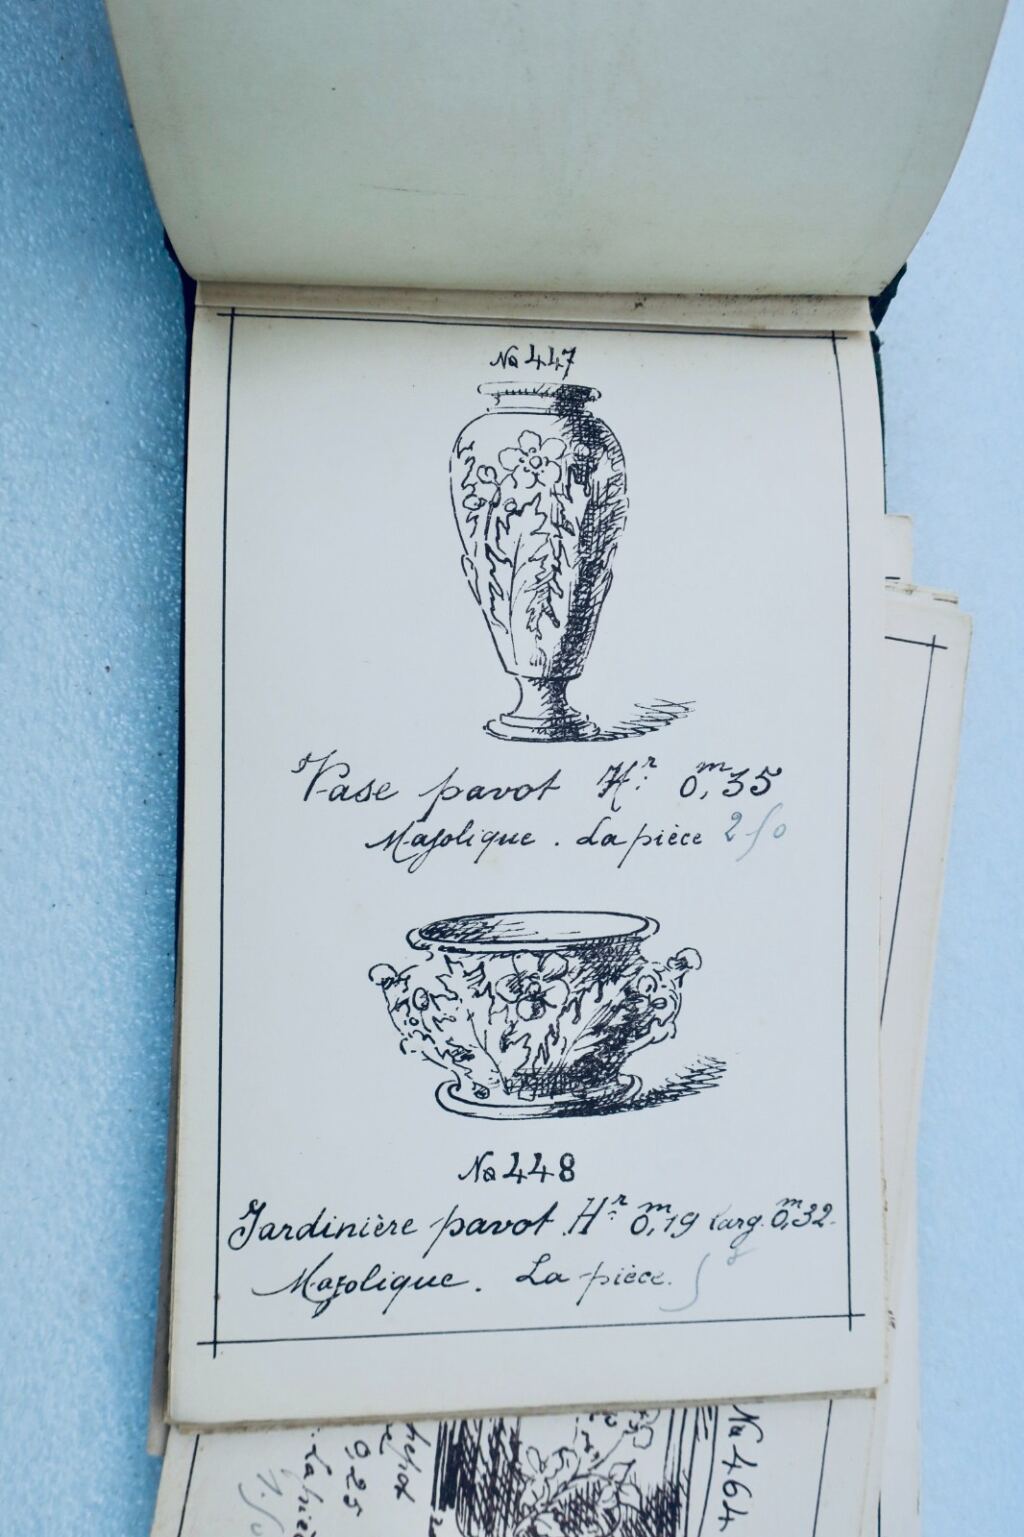 No 447
Vase pavot Hr 0m,35
Majolique. La pièce 2 50
No 448
Jardinière pavot Hr 0m,19 larg. 0m,32.
Majolique. La pièce. 5
No 464
0,25